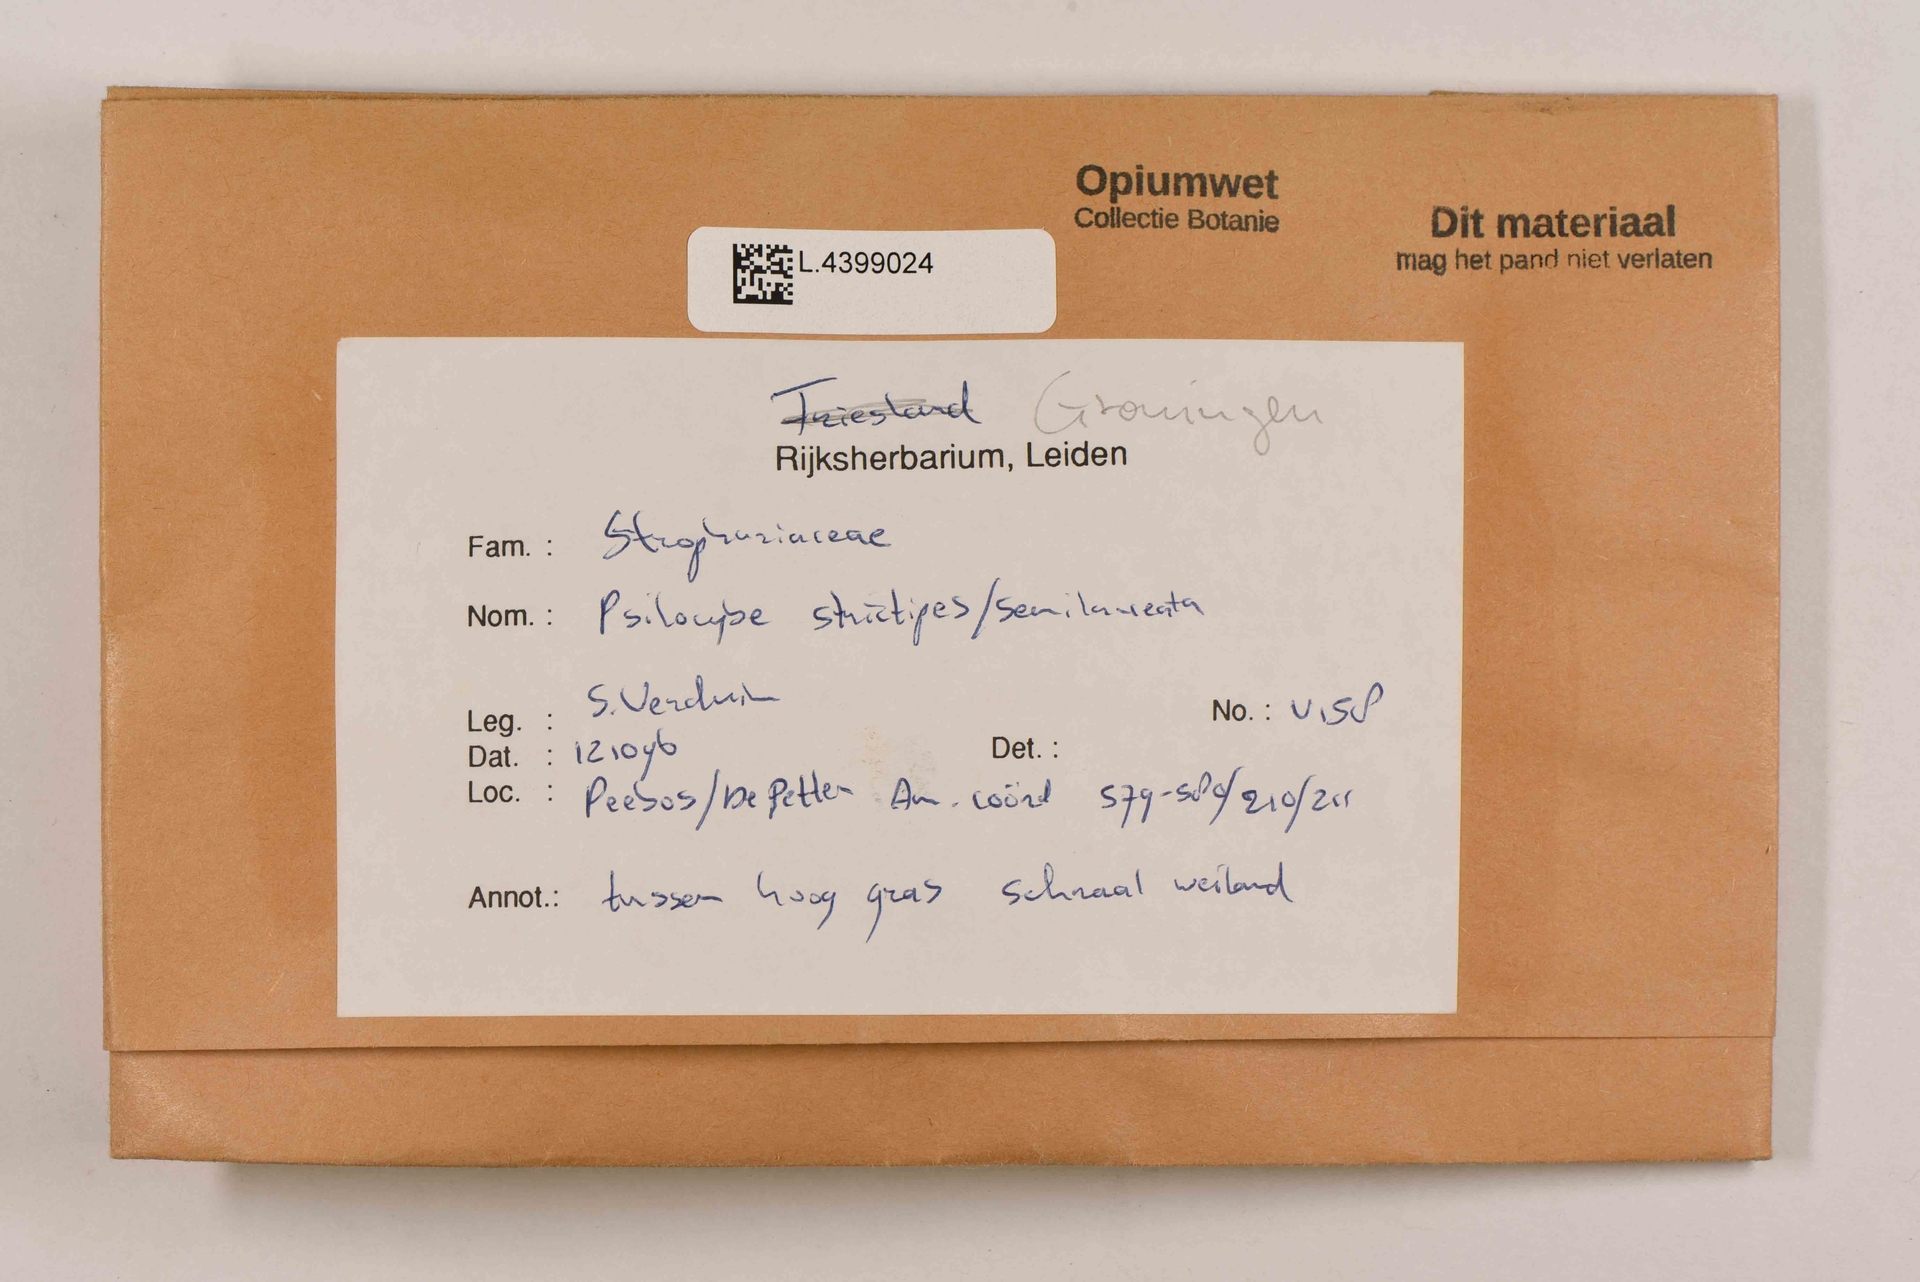 Opiumwet
Collectie Botanie
Dit materiaal
mag het pand niet verlaten
L.4399024
Friesland Groningen
Rijksherbarium, Leiden
Fam. : Strophariaceae
Nom. : Psilocybe strictipes/semilanceata
Leg. : S. Verduin
No. : V158
Dat. : 121096
Det. :
Loc. : Peebos/De Petten Am. coörd 579-580/210/211
Annot.: tussen hoog gras schraal weiland